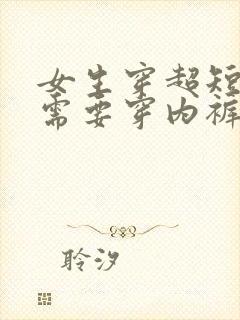 女生穿超短
需要穿内裤
聆汐